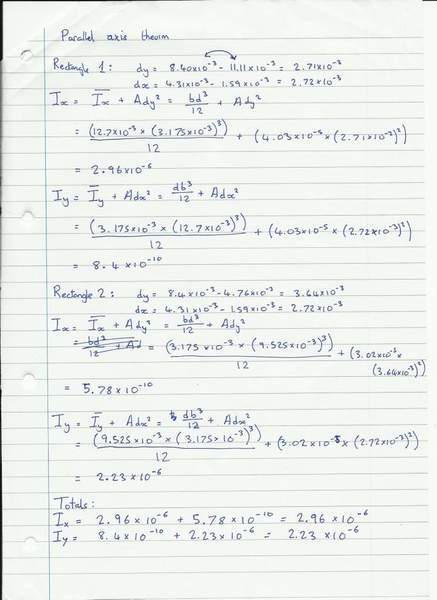 Parallel axis theorm
Rectangle 1: dy = 8.40×10⁻³ - 11.11×10⁻³ = 2.71×10⁻³
dx = 4.31×10⁻³ - 1.59×10⁻³ = 2.72×10⁻³
Ix = I̅x + Ady² = bd³/12 + Ady²
= (12.7×10⁻³ × (3.175×10⁻³)³)/12 + (4.03×10⁻⁵ × (2.71×10⁻³)²)
= 2.96×10⁻⁶
Iy = I̅y + Adx² = db³/12 + Adx²
= (3.175×10⁻³ × (12.7×10⁻³)³)/12 + (4.03×10⁻⁵ × (2.72×10⁻³)²)
= 8.4×10⁻¹⁰
Rectangle 2: dy = 8.4×10⁻³ - 4.76×10⁻³ = 3.64×10⁻³
dx = 4.31×10⁻³ - 1.59×10⁻³ = 2.72×10⁻³
Ix = I̅x + Ady² = bd³/12 + Ady²
= bd³/12 + Ad = (3.175×10⁻³ × (9.525×10⁻³)³)/12 + (3.02×10⁻⁵ × (3.64×10⁻³)²)
= 5.78×10⁻¹⁰
Iy = I̅y + Adx² = db³/12 + Adx²
= (9.525×10⁻³ × (3.175×10⁻³)³)/12 + (3.02×10⁻⁵ × (2.72×10⁻³)²)
= 2.23×10⁻⁶
Totals:
Ix = 2.96×10⁻⁶ + 5.78×10⁻¹⁰ = 2.96×10⁻⁶
Iy = 8.4×10⁻¹⁰ + 2.23×10⁻⁶ = 2.23×10⁻⁶